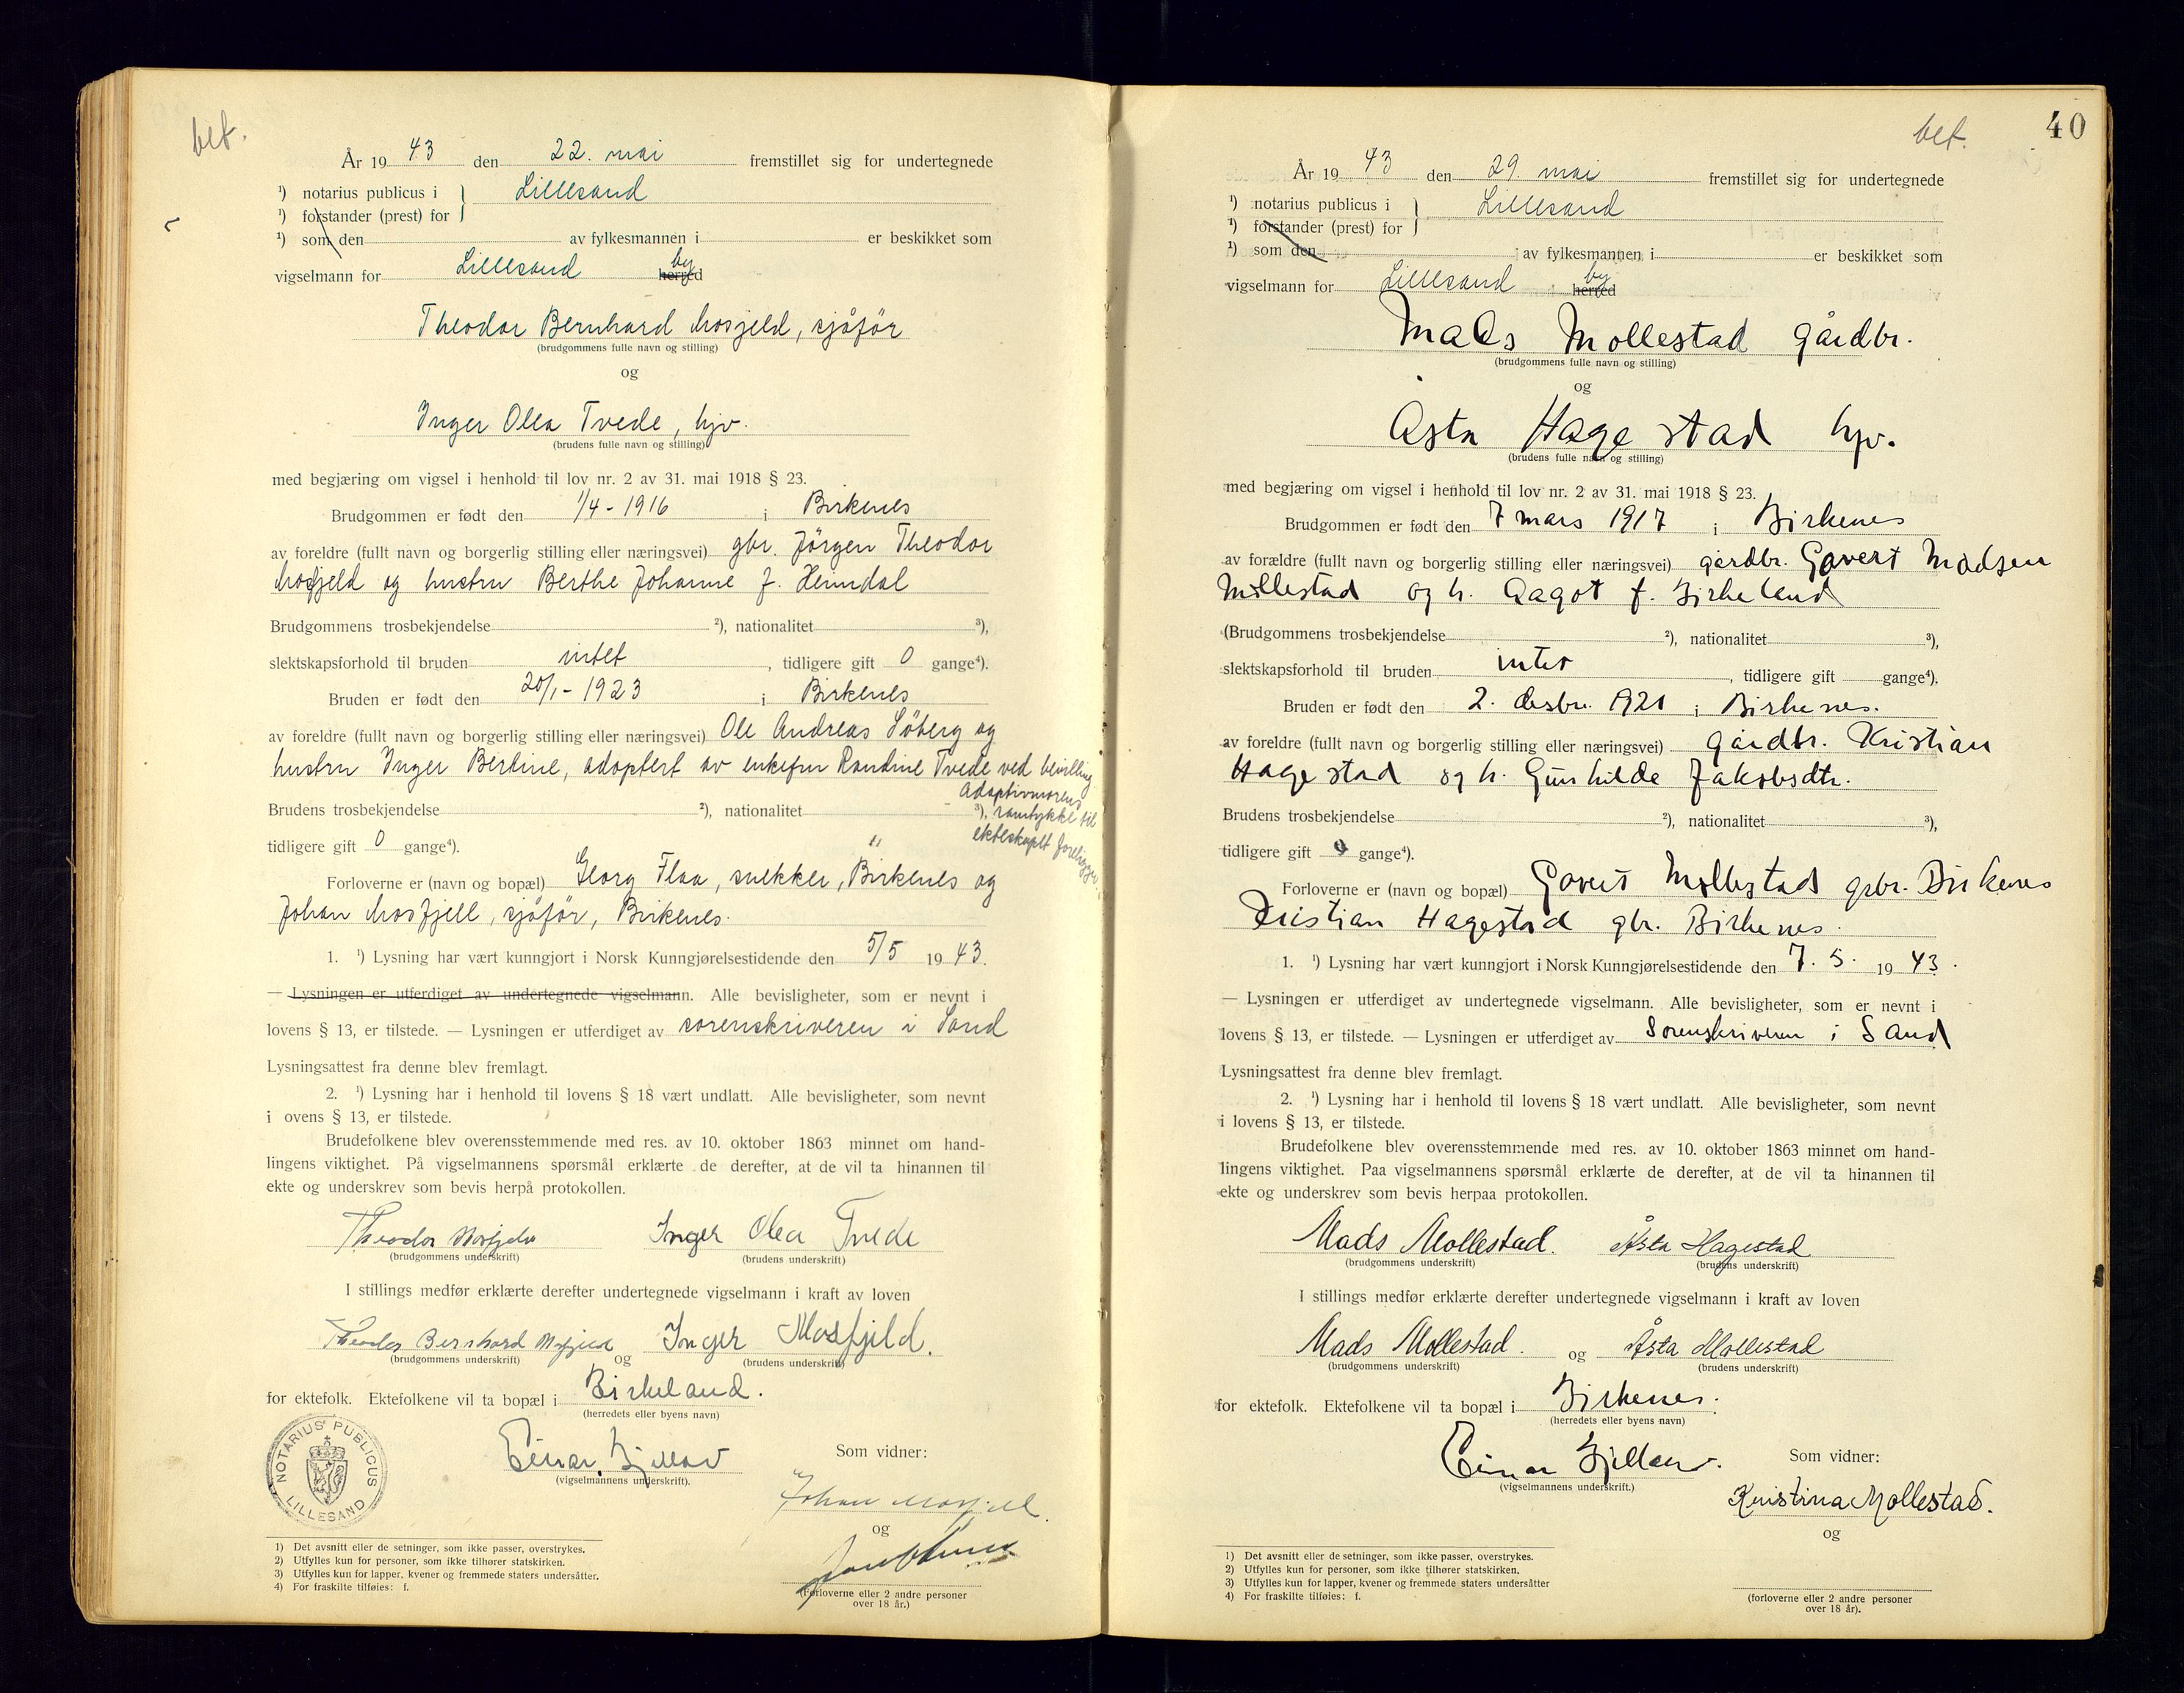 bet.
År 19 43 den 22. mai fremstillet sig for undertegnede
¹) notarius publicus i } Lillesand
¹) forstander (prest) for
¹) som den av fylkesmannen i er beskikket som
vigselmann for Lillesand herred by
Theodor Bernhard Mosfjeld, sjåför
(brudgommens fulle navn og stilling)
og
Inger Olea Tvede, hjv.
(brudens fulle navn og stilling)
med begjæring om vigsel i henhold til lov nr. 2 av 31. mai 1918 § 23.
Brudgommen er født den 1/4 - 1916 i Birkenes
av foreldre (fullt navn og borgerlig stilling eller næringsvei) gbr. Jörgen Theodor
Mosfjeld og hustru Berthe Johanne f. Heimdal
Brudgommens trosbekjendelse ²), nationalitet ³),
slektskapsforhold til bruden intet, tidligere gift 0 gange⁴).
Bruden er født den 20/1 - 1923 i Birkenes
av foreldre (fullt navn og borgerlig stilling eller næringsvei) Ole Andreas Söberg og
hustru Inger Bertine, adoptert av enkefru Randine Tvede ved bevilling
Adoptivmorens
Brudens trosbekjendelse ²), nationalitet ³), samtykke til
ekteskapet foreligger.
tidligere gift 0 gange⁴).
Forloverne er (navn og bopæl) Georg Flaa, snekker, Birkenes og
Johan Mosfjell, sjåför, Birkenes.
1. ¹) Lysning har vært kunngjort i Norsk Kunngjørelsestidende den 5/5 19 43.
— Lysningen er utferdiget av undertegnede vigselmann. Alle bevisligheter, som er nevnt i
lovens § 13, er tilstede. — Lysningen er utferdiget av sorenskriveren i Sand
Lysningsattest fra denne blev fremlagt.
2. ¹) Lysning har i henhold til lovens § 18 vært undlatt. Alle bevisligheter, som nevnt
i ovens § 13, er tilstede.
Brudefolkene blev overensstemmende med res. av 10. oktober 1863 minnet om hand-
lingens viktighet. På vigselmannens spørsmål erklærte de derefter, at de vil ta hinannen til
ekte og underskrev som bevis herpå protokollen.
Theodor Mosfjeld Inger Olea Tvede
(brudgommens underskrift) (brudens underskrift)
I stillings medfør erklærte derefter undertegnede vigselmann i kraft av loven
Theodor Bernhard Mosfjeld og Inger Mosfjeld.
(brudgommens underskrift) (brudens underskrift)
for ektefolk. Ektefolkene vil ta bopæl i Birkeland.
(herredets eller byens navn)
NOTARIUS PUBLICUS LILLESAND
Einar
(vigselmannens underskrift).
Som vidner:
Johan Mosfjell.
og
(Forloverne eller 2 andre personer
over 18 år.)
1) Det avsnitt eller de setninger, som ikke passer, overstrykes.
2) Utfylles kun for personer, som ikke tilhører statskirken.
3) Utfylles kun for lapper, kvener og fremmede staters undersåtter.
4) For fraskilte tilføies: f.
bet.
40
År 19 43 den 29. mai fremstillet sig for undertegnede
¹) notarius publicus i } Lillesand
¹) forstander (prest) for
¹) som den av fylkesmannen i er beskikket som
vigselmann for Lillesand herred by
Mads Mollestad gårdbr.
(brudgommens fulle navn og stilling)
og
Åsta Hagestad hjv.
(brudens fulle navn og stilling)
med begjæring om vigsel i henhold til lov nr. 2 av 31. mai 1918 § 23.
Brudgommen er født den 7 mars 1917 i Birkenes
av forældre (fullt navn og borgerlig stilling eller næringsvei) gårdbr. Govert Madsen
Mollestad og h. Aagot f. Birkeland
(Brudgommens trosbekjendelse ²), nationalitet ³),
slektskapsforhold til bruden intet, tidligere gift gange⁴).
Bruden er født den 2. desbr. 1921 i Birkenes.
av foreldre (fullt navn og borgerlig stilling eller næringsvei) gårdbr. Kristian
Hagestad og h. Gunhilde Jakobsdtr.
Brudens trosbekjendelse ²), nationalitet ³),
tidligere gift 0 gange⁴).
Forloverne er (navn og bopæl) Govert Mollestad gbr. Birkenes
Kristian Hagestad gbr. Birkenes.
1. ¹) Lysning har vært kunngjort i Norsk Kunngjørelsestidende den 7. 5. 19 43.
— Lysningen er utferdiget av undertegnede vigselmann. Alle bevisligheter, som er nevnt i
lovens § 13, er tilstede. — Lysningen er utferdiget av Sorenskriveren i Sand
Lysningsattest fra denne blev fremlagt.
2. ¹) Lysning har i henhold til lovens § 18 vært undlatt. Alle bevisligheter, som nevnt
i lovens § 13, er tilstede.
Brudefolkene blev overensstemmende med res. av 10. oktober 1863 minnet om hand-
lingens viktighet. Paa vigselmannens spørsmål erklærte de derefter, at de vil ta hinannen til
ekte og underskrev som bevis herpaa protokollen.
Mads Mollestad. Åsta Hagestad
(brudgommens underskrift) (brudens underskrift)
I stillings medfør erklærte derefter undertegnede vigselmann i kraft av loven
Mads Mollestad. og Åsta Mollestad
(brudgommens underskrift) (brudens underskrift)
for ektefolk. Ektefolkene vil ta bopæl i Birkenes.
(herredets eller byens navn)
Einar
(vigselmannens underskrift.)
Som vidner:
Kristina Mollestad.
og
(forloverne eller 2 andre personer
over 18 år).
1) Det avsnitt eller de setninger, som ikke passer, overstrykes.
2) Utfylles kun for personer, som ikke tilhører statskirken.
3) Utfylles kun for lapper, kvener og fremmede staters undersåtter
4) For fraskilte tilføies: f.